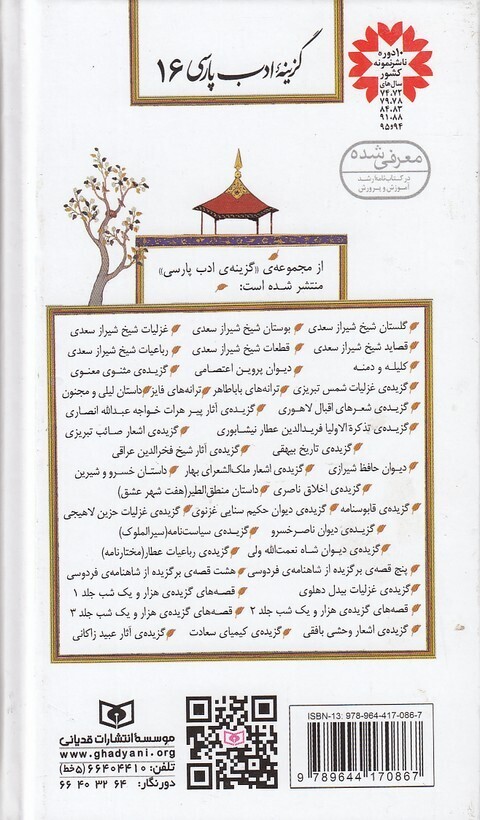 گزینهٔ ادب پارسی ۱۶
۱۰ دوره
ناشر نمونه
کشور
سال‌های
۷۴،۷۲
۷۹،۷۸
۸۴،۸۳
۹۱،۸۸
۹۴و۹۵
معرفی شده
در کتابنامه رشد
آموزش و پرورش
از مجموعه‌ی «گزینه‌ی ادب پارسی»
منتشر شده است:
گلستان شیخ شیراز سعدی بوستان شیخ شیراز سعدی غزلیات شیخ شیراز سعدی
قصاید شیخ شیراز سعدی قطعات شیخ شیراز سعدی رباعیات شیخ شیراز سعدی
کلیله و دمنه دیوان پروین اعتصامی گزیده‌ی مثنوی معنوی
گزیده‌ی غزلیات شمس تبریزی ترانه‌های باباطاهر ترانه‌های فایز داستان لیلی و مجنون
گزیده‌ی شعرهای اقبال لاهوری گزیده‌ی آثار پیر هرات خواجه عبدالله انصاری
گزیده‌ی تذکرة الاولیا فریدالدین عطار نیشابوری گزیده‌ی اشعار صائب تبریزی
گزیده‌ی تاریخ بیهقی گزیده‌ی آثار شیخ فخرالدین عراقی
دیوان حافظ شیرازی گزیده‌ی اشعار ملک‌الشعرای بهار داستان خسرو و شیرین
گزیده‌ی اخلاق ناصری داستان منطق‌الطیر(هفت شهر عشق)
گزیده‌ی قابوسنامه گزیده‌ی دیوان حکیم سنایی غزنوی گزیده‌ی غزلیات حزین لاهیجی
گزیده‌ی دیوان ناصرخسرو گزیده‌ی سیاست‌نامه(سیرالملوک)
گزیده‌ی دیوان شاه نعمت‌الله ولی گزیده‌ی رباعیات عطار(مختارنامه)
پنج قصه‌ی برگزیده از شاهنامه‌ی فردوسی هشت قصه‌ی برگزیده از شاهنامه‌ی فردوسی
گزیده‌ی غزلیات بیدل دهلوی قصه‌های گزیده‌ی هزار و یک شب جلد ۱
قصه‌های گزیده‌ی هزار و یک شب جلد ۲ قصه‌های گزیده‌ی هزار و یک شب جلد ۳
گزیده‌ی اشعار وحشی بافقی گزیده‌ی کیمیای سعادت گزیده‌ی آثار عبید زاکانی
ISBN-13: 978-964-417-086-7
9 789644 170867
موسسه انتشارات قدیانی
www.ghadyani.org
تلفن: ۶۶۴۰۴۴۱۰ (۵ خط)
دورنگار: ۶۶ ۴۰ ۳۲ ۶۴